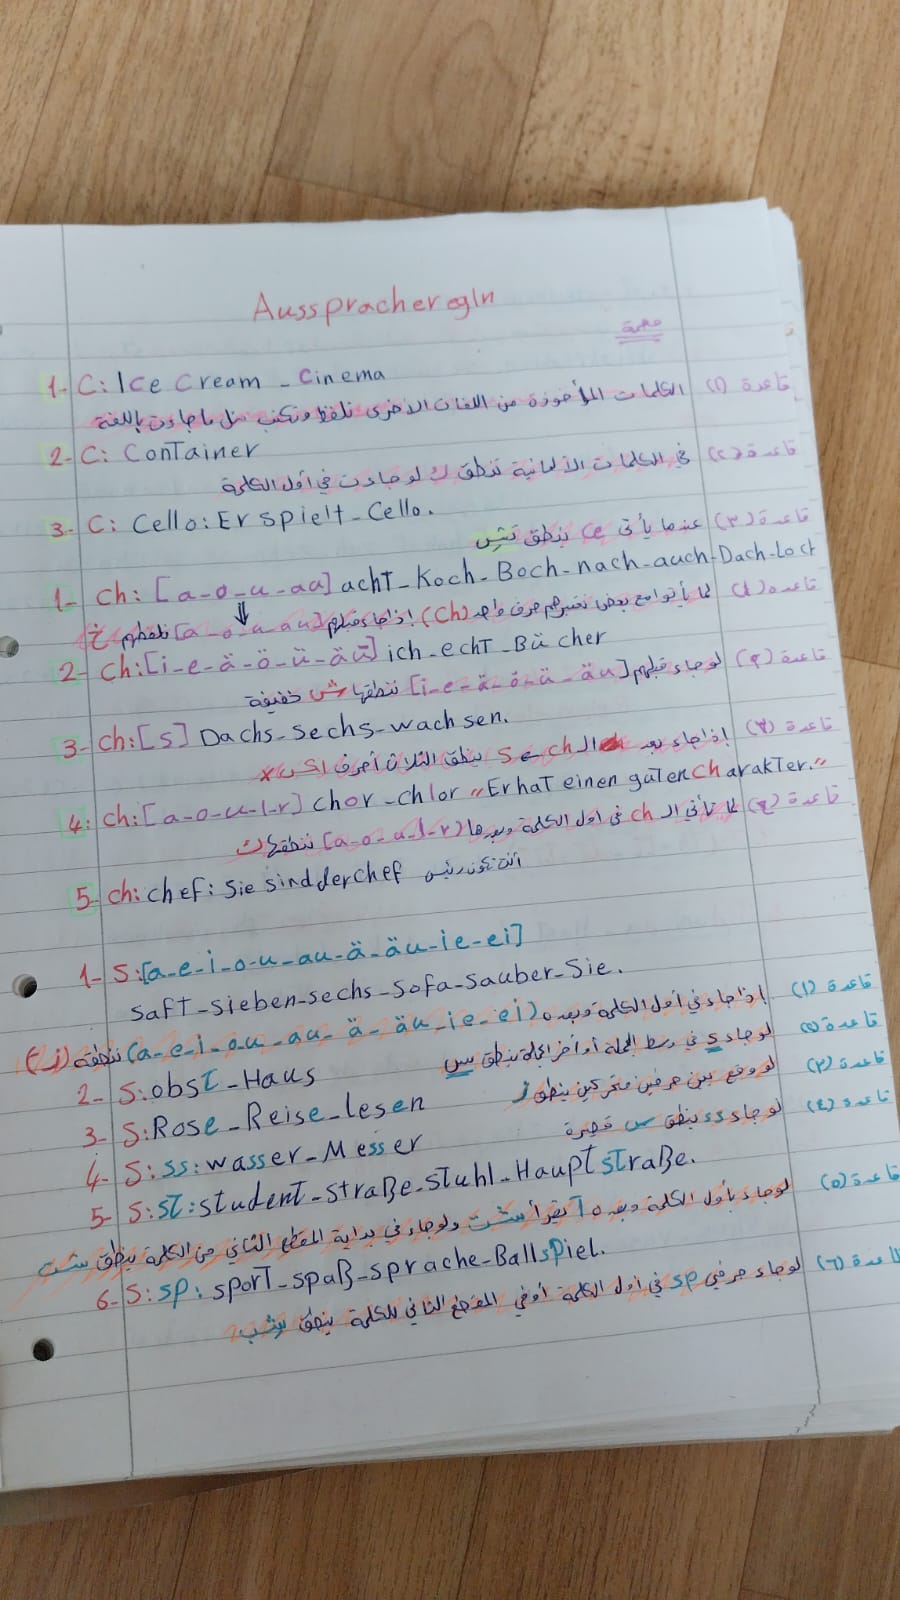 Ausspracheregln
مهمة
1- C: Ice Cream - Cinema
قاعدة (١) الكلمات المأخوذة من اللغات الاخرى تلفظ وتكتب مثل ما جاءت باللغة
2- C: Container
قاعدة (٢) في الكلمات الألمانية تنطق ك لو جاءت في أول الكلمة
3- C: Cello: Er spielt - Cello.
قاعدة (٣) عندما يأتي ce ينطق تش
1- Ch: [a-o-u-au] acht - Koch - Boch - nach - auch - Dach - Loch
قاعدة (١) لما يأتوا مع بعض نعتبرهم حرف واحد (Ch) إذا جاء قبلهم [a-o-u-au] نلفظهم خ
2- Ch: [i-e-ä-ö-ü-äu] ich - echt - Bücher
قاعدة (٢) لو جاء قبلهم [i-e-ä-ö-ü-äu] ننطقها ش خفيفة
3- Ch: [s] Dachs - Sechs - wachsen.
قاعدة (٣) إذا جاء بعد الـ ch s ينطق الثلاث أحرف اكس x
4: Ch: [a-o-u-l-r] Chor - Chlor "Er hat einen guten Charakter."
قاعدة (٤) لما تأتي الـ ch في اول الكلمة وبعدها (a-o-u-l-r) ننطقها ك
5- Ch: Chef: Sie sind der Chef أنت تكون رئيس
1- S: [a-e-i-o-u-au-ä-äu-ie-ei]
Saft - Sieben - Sechs - Sofa - Sauber - Sie.
قاعدة (١) إذا جاء في أول الكلمة وبعده (a-e-i-o-u-au-ä-äu-ie-ei) ننطقه (ز)
2- S: obst - Haus
قاعدة (٢) لو جاء s في وسط الجملة أو آخر الجملة ينطق س
3- S: Rose - Reise - lesen
قاعدة (٣) لو وقع بين حرفين متحركين ينطق ز
4- S: ss: wasser - Messer
قاعدة (٤) لو جاء ss ينطق س قصيرة
5- S: st: student - Straße - Stuhl - Hauptstraße.
قاعدة (٥) لو جاء بأول الكلمة وبعده t يقرأ شت ولو جاء في بداية المقطع الثاني من الكلمة ينطق شت
6- S: sp: sport - spaß - sprache - Ballspiel.
قاعدة (٦) لو جاء حرفي sp في أول الكلمة أو في المقطع الثاني للكلمة ينطق شب